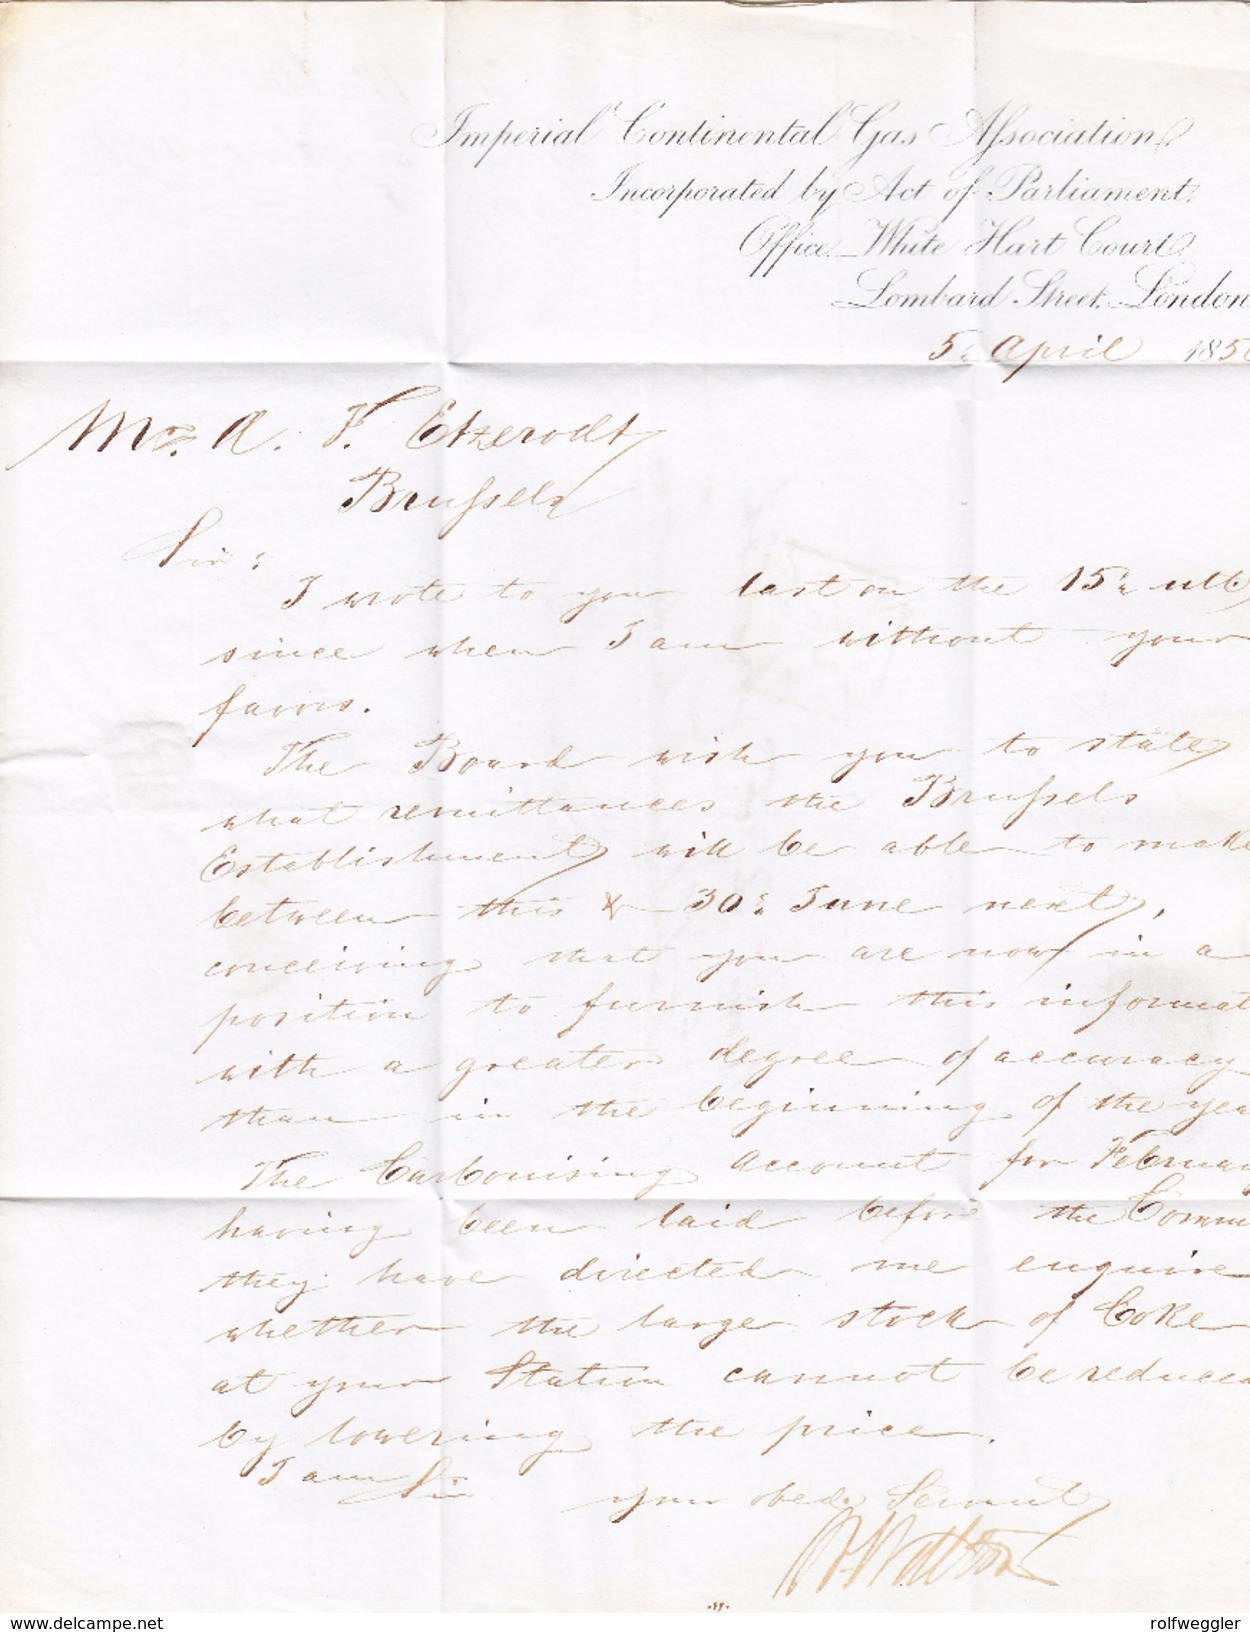 Imperial Continental Gas Association
Incorporated by Act of Parliament.
Office White Hart Court
Lombard Street. London
5 April 185
Mr. A. F. Etzerodt
Brussels
Sir:
I wrote to you last on the 15 ulto
since when I am without your
favors.
The Board wish you to state
what remittances the Brussels
Establishment will be able to make
between this & 30 June next,
conceiving that you are now in a
position to furnish this informat
with a greater degree of accuracy
than in the beginning of the yea
The Carbonising Account for Februa
having been laid before the Comm
they have directed me enquire
whether the large stock of Coke
at your Station cannot be reduced
by lowering the price.
I am Sir
your obed. Servant
delcampe.net
rolfweggler